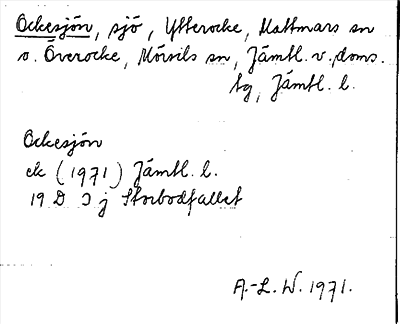 Ockesjön, sjö, Ytterocke, Mattmars sn
o. Överocke, Mörsils sn, Jämtl. v. doms.
tg, Jämtl. l.
Ockesjön
ek (1971) Jämtl. l.
19 D 3 j Storbodfallet
A.-L. W. 1971.